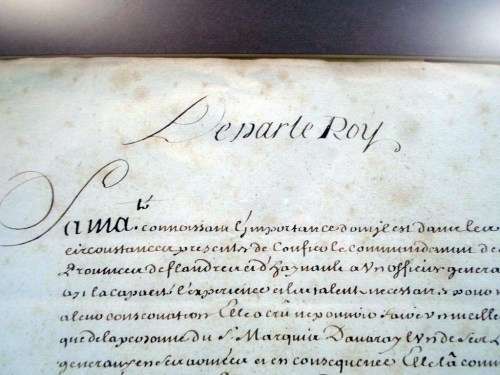 De par le Roy
Sa Ma.té connoissant l'importance dont il est dans les
circonstances presentes de Confier le commandement de
Provinces de flandre et d'haynault a Un officier general
qui la capacité l'experience et les talents necessaires pour
a leur conservation Elle a crû ne pouvoir faire
que de la personne du S. Marquis Davaray l'un de ses
generaux en ses armées et en consequence Elle l'a commis